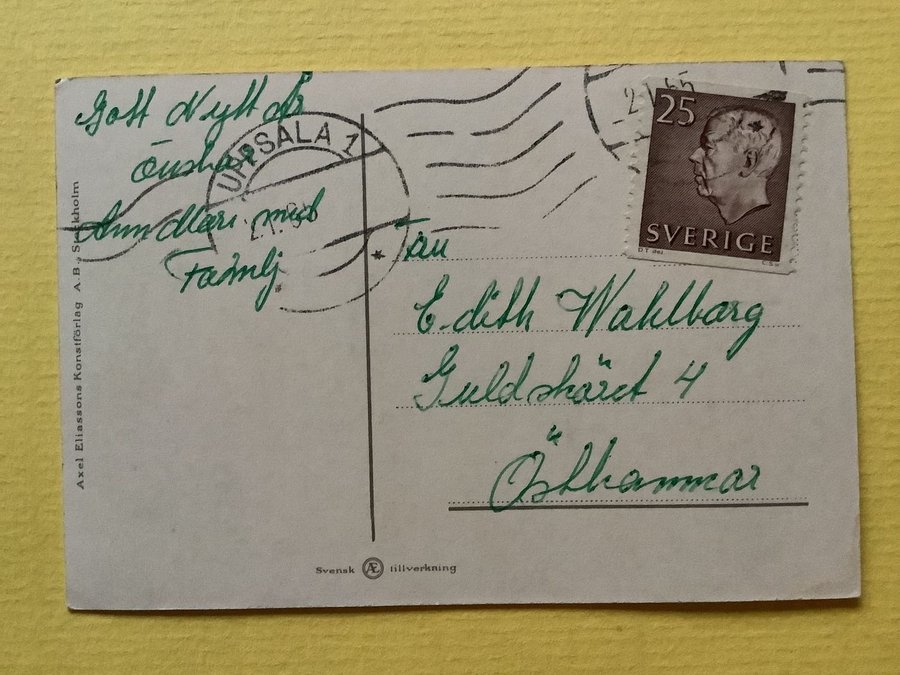 Gott Nytt År
önskar
Ann Mari med
Familj
UPPSALA 1
2.1.65
Axel Eliassons Konstförlag A.B. Stockholm
25
SVERIGE
Fru
Edith Wahlborg
Guldskäret 4
Östhammar
Svensk Æ tillverkning